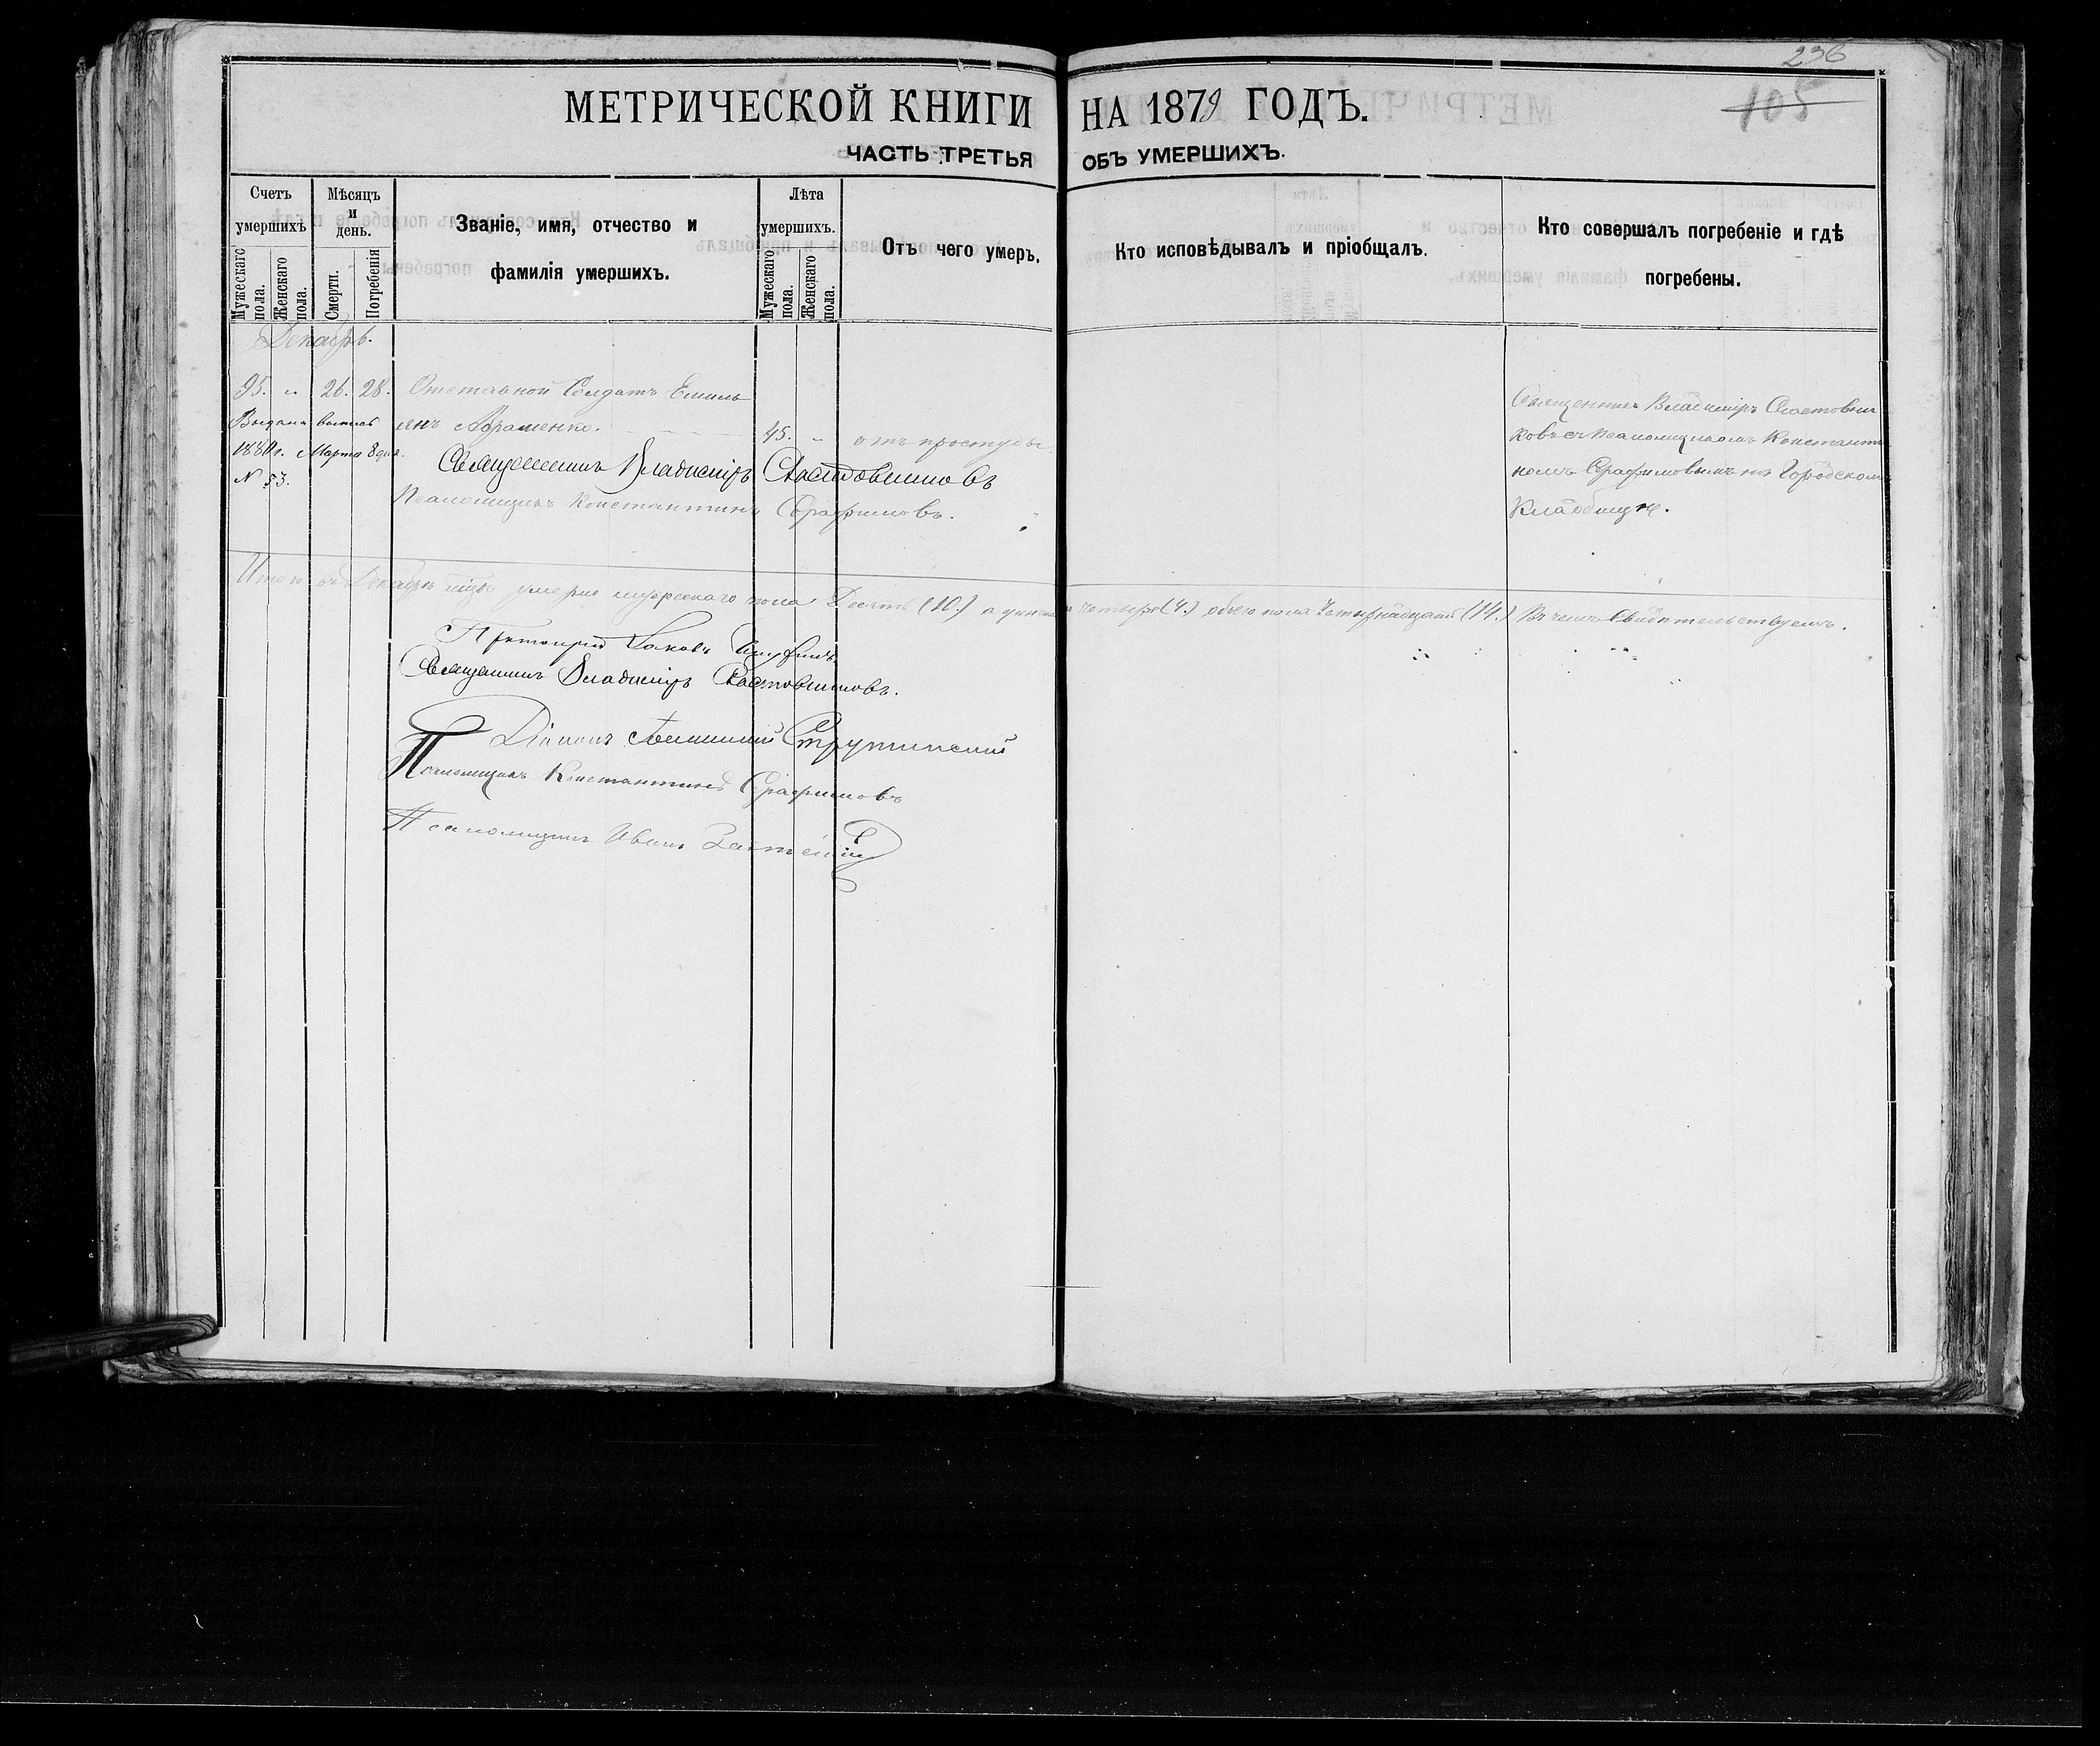 236
105
МЕТРИЧЕСКОЙ КНИГИ НА 1879 ГОДЪ.
ЧАСТЬ ТРЕТЬЯ ОБЪ УМЕРШИХЪ.
Счетъ умершихъ
Мужескаго пола.
Женскаго пола.
Мѣсяцъ и день.
Смерти.
Погребенія
Званіе, имя, отчество и
фамилія умершихъ.
Лѣта умершихъ.
Мужескаго пола.
Женскаго пола.
Отъ чего умеръ.
Кто исповѣдывалъ и пріобщалъ.
Кто совершалъ погребеніе и гдѣ
погребены.
Декабрь.
95. " 26. 28. Отставной Солдатъ Емиль
янъ Авраменко. 45. " отъ простуды
Выдана выпись
1880 г. Марта 8 дня.
N 53.
Священникъ Владиміръ Сластовни
ковъ съ Псаломщикомъ Константи
номъ Серафимовымъ на Городскомъ
Кладбищѣ.
Священникъ Владиміръ Сластовниковъ
Псаломщикъ Константинъ Серафимовъ.
Итого въ Декабрѣ м̃цѣ умерло мужескаго пола Десять (10.) а женска четыре (4.) обоего пола Четырнадцать (14.) Въ чемъ Свидѣтельствуемъ.
Протоіерей Іаковъ
Священникъ Владиміръ Сластовниковъ.
Діаконъ Струтинскій
Псаломщикъ Константинъ Серафимовъ
Псаломщикъ Иванъ